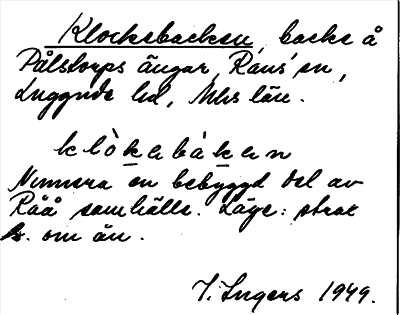 Klockebacken, backe å
Pålstorps ängar, Raus' sn,
Luggude hd, Mhs län.
klòkebàken
Numera en bebyggd del av
Råå samhälle. Läge: strax
ö. om ån.
I. Ingers 1949.